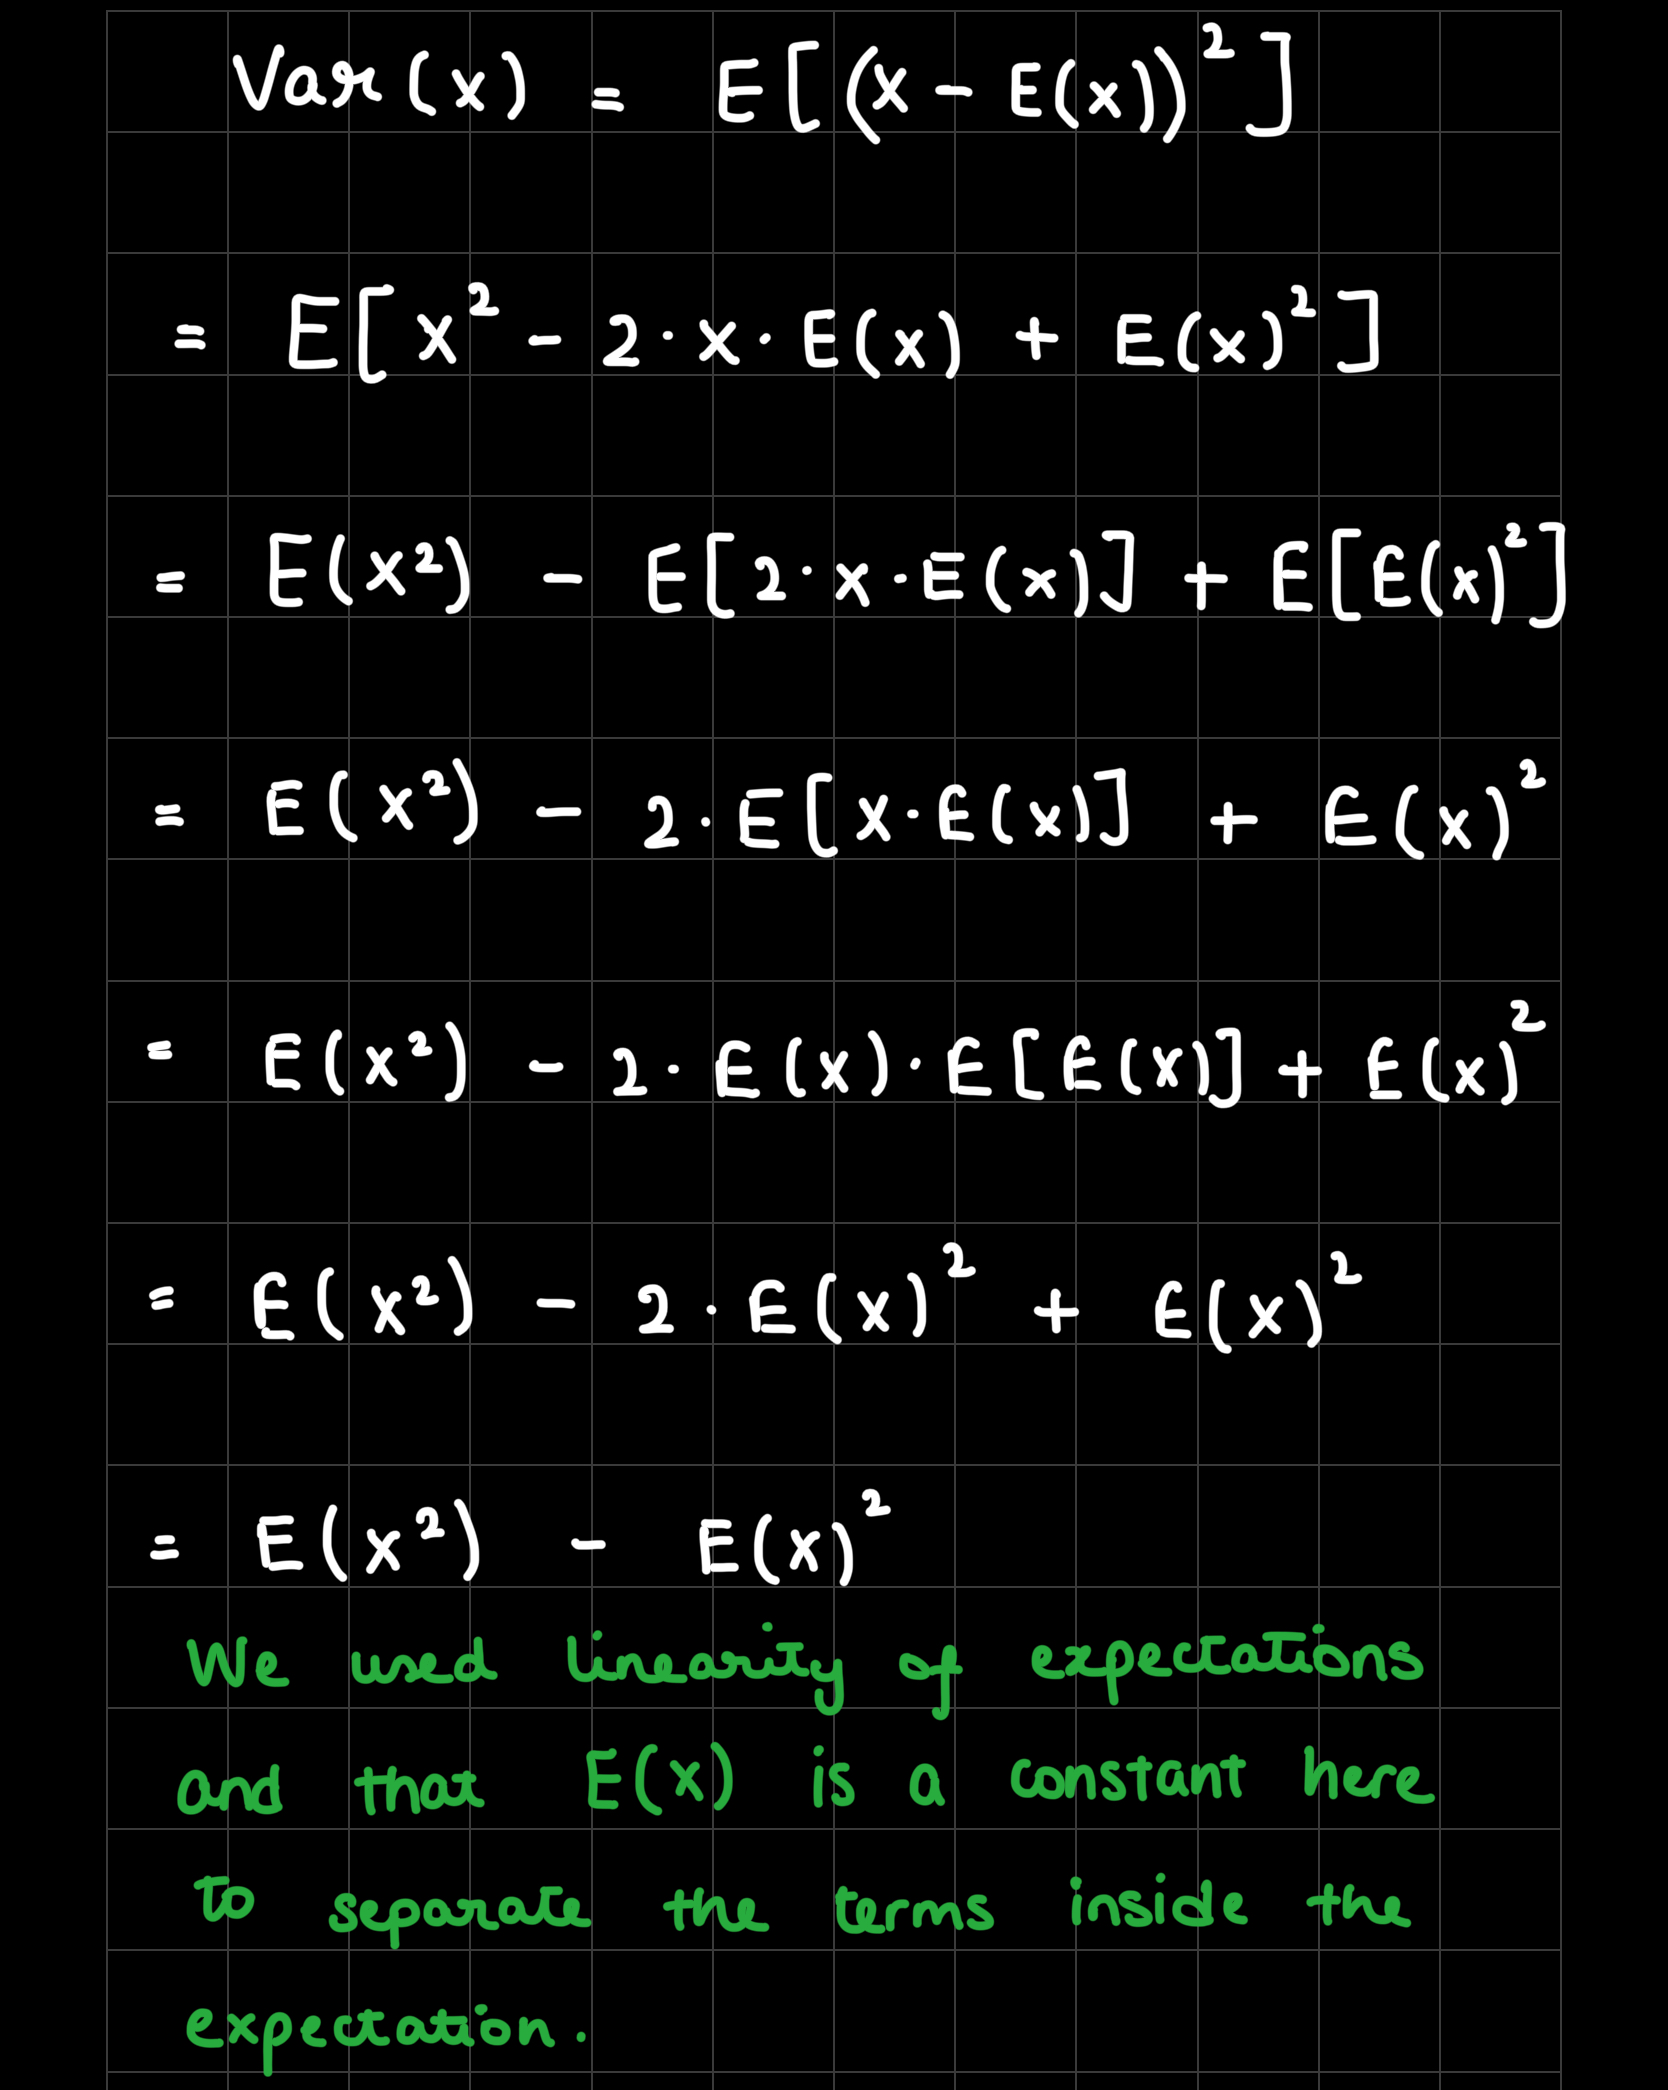 Var(x) = E[(x - E(x))²]
= E[x² - 2·x·E(x) + E(x)²]
= E(x²) - E[2·x·E(x)] + E[E(x)²]
= E(x²) - 2·E[x·E(x)] + E(x)²
= E(x²) - 2·E(x)·E[E(x)] + E(x)²
= E(x²) - 2·E(x)² + E(x)²
= E(x²) - E(x)²
We used linearity of expectations
and that E(x) is a constant here
to separate the terms inside the
expectation.